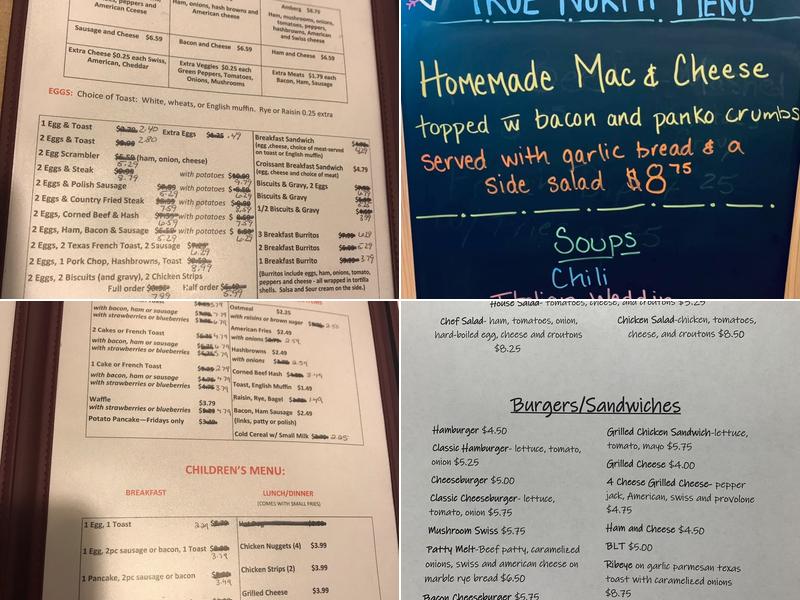 peppers and
American Cceese
Ham, onions, hash browns and
American cheese
Amberg $8.79
Ham, mushrooms, onions,
tomatoes, peppers,
hashbrowns, American
and Swiss cheese
Sausage and Cheese $6.59
Bacon and Cheese $6.59
Ham and Cheese $6.59
Extra Cheese $0.25 each Swiss,
American, Cheddar
Extra Veggies $0.25 each
Green Peppers, Tomatoes,
Onions, Mushrooms
Extra Meats $1.79 each
Bacon, Ham, Sausage
EGGS: Choice of Toast: White, wheats, or English muffin. Rye or Raisin 0.25 extra
1 Egg & Toast 2.40 Extra Eggs .49
2 Eggs & Toast 2.80
2 Egg Scrambler (ham, onion, cheese)
5.29
2 Eggs & Steak with potatoes
8.79
2 Eggs & Polish Sausage with potatoes
5.29
2 Eggs & Country Fried Steak with potatoes
7.59
2 Eggs, Corned Beef & Hash with potatoes $
6.59
2 Eggs, Ham, Bacon & Sausage with potatoes $
5.29 6.29
2 Eggs, 2 Texas French Toast, 2 Sausage
6.29
2 Eggs, 1 Pork Chop, Hashbrowns, Toast
8.99
2 Eggs, 2 Biscuits (and gravy), 2 Chicken Strips
Full order Half order
7.99 5.99
Breakfast Sandwich
(egg ,cheese, choice of meat-served
on toast or English muffin)
4.29
Croissant Breakfast Sandwich
(egg, cheese and choice of meat) $4.79
Biscuits & Gravy, 2 Eggs
Biscuits & Gravy
1/2 Biscuits & Gravy
3.99
3 Breakfast Burritos 6.29
2 Breakfast Burritos 5.29
1 Breakfast Burrito 3.79
(Burritos include eggs, ham, onions, tomato,
peppers and cheese - all wrapped in tortilla
shells. Salsa and Sour cream on the side.)
TRUE NORTH MENU
Homemade Mac & Cheese
topped w bacon and panko crumbs
served with garlic bread & a
side salad $8 75
Soups
Chili
Italian Weddin
with bacon, ham or sausage
with strawberries or blueberries
2 Cakes or French Toast
with bacon, ham or sausage
with strawberries or blueberries
1 Cake or French Toast
with bacon, ham or sausage
with strawberries or blueberries
Waffle $3.79
with strawberries or blueberries 4.79
Potato Pancake—Fridays only
Oatmeal $2.25
with raisins or brown sugar 2.50
American Fries $2.49
with onions 2.59
Hashbrowns $2.49
with onions 2.59
Corned Beef Hash 3.49
Toast, English Muffin $1.49
Raisin, Rye, Bagel 1.49
Bacon, Ham, Sausage $2.49
(links, patty or polish)
Cold Cereal w/ Small Milk 2.25
CHILDREN'S MENU:
BREAKFAST
LUNCH/DINNER
(COMES WITH SMALL FRIES)
1 Egg, 1 Toast 2.29
1 Egg, 2pc sausage or bacon, 1 Toast
3.79
1 Pancake, 2pc sausage or bacon
3.49
Chicken Nuggets (4) $3.99
Chicken Strips (2) $3.99
Grilled Cheese $3.99
House Salad- tomatoes, cheese, and croutons $5.25
Chef Salad- ham, tomatoes, onion,
hard-boiled egg, cheese and croutons
$8.25
Chicken Salad-chicken, tomatoes,
cheese, and croutons $8.50
Burgers/Sandwiches
Hamburger $4.50
Classic Hamburger- lettuce, tomato,
onion $5.25
Cheeseburger $5.00
Classic Cheeseburger- lettuce,
tomato, onion $5.75
Mushroom Swiss $5.75
Patty Melt-Beef patty, caramelized
onions, swiss and american cheese on
marble rye bread $6.50
Bacon Cheeseburger $5.75
Grilled Chicken Sandwich-lettuce,
tomato, mayo $5.75
Grilled Cheese $4.00
4 Cheese Grilled Cheese- pepper
jack, American, swiss and provolone
$4.75
Ham and Cheese $4.50
BLT $5.00
Ribeye on garlic parmesan texas
toast with caramelized onions
$8.75